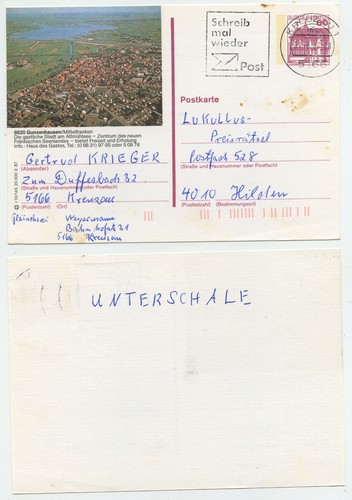 Schreib
mal
wieder
Post
8820 Gunzenhausen/Mittelfranken
Die gastliche Stadt am Altmühlsee – Zentrum des neuen
Fränkischen Seenlandes – bietet Freizeit und Erholung
Info.: Haus des Gastes, Tel. (0 98 31) 97 95 oder 5 08 76
Postkarte
Gertrud KRIEGER
(Absender)
Zum Duffesbach 32
(Straße und Hausnummer oder Postfach)
5166 Kreuzau
(Postleitzahl) (Ort)
Weyermann
Bahnhofstr.
5166 Kreuzau
Lukullus-
Preisrätsel
Postfach 528
(Straße und Hausnummer oder Postfach)
4010 Hilden
(Postleitzahl) (Bestimmungsort)
UNTERSCHALE